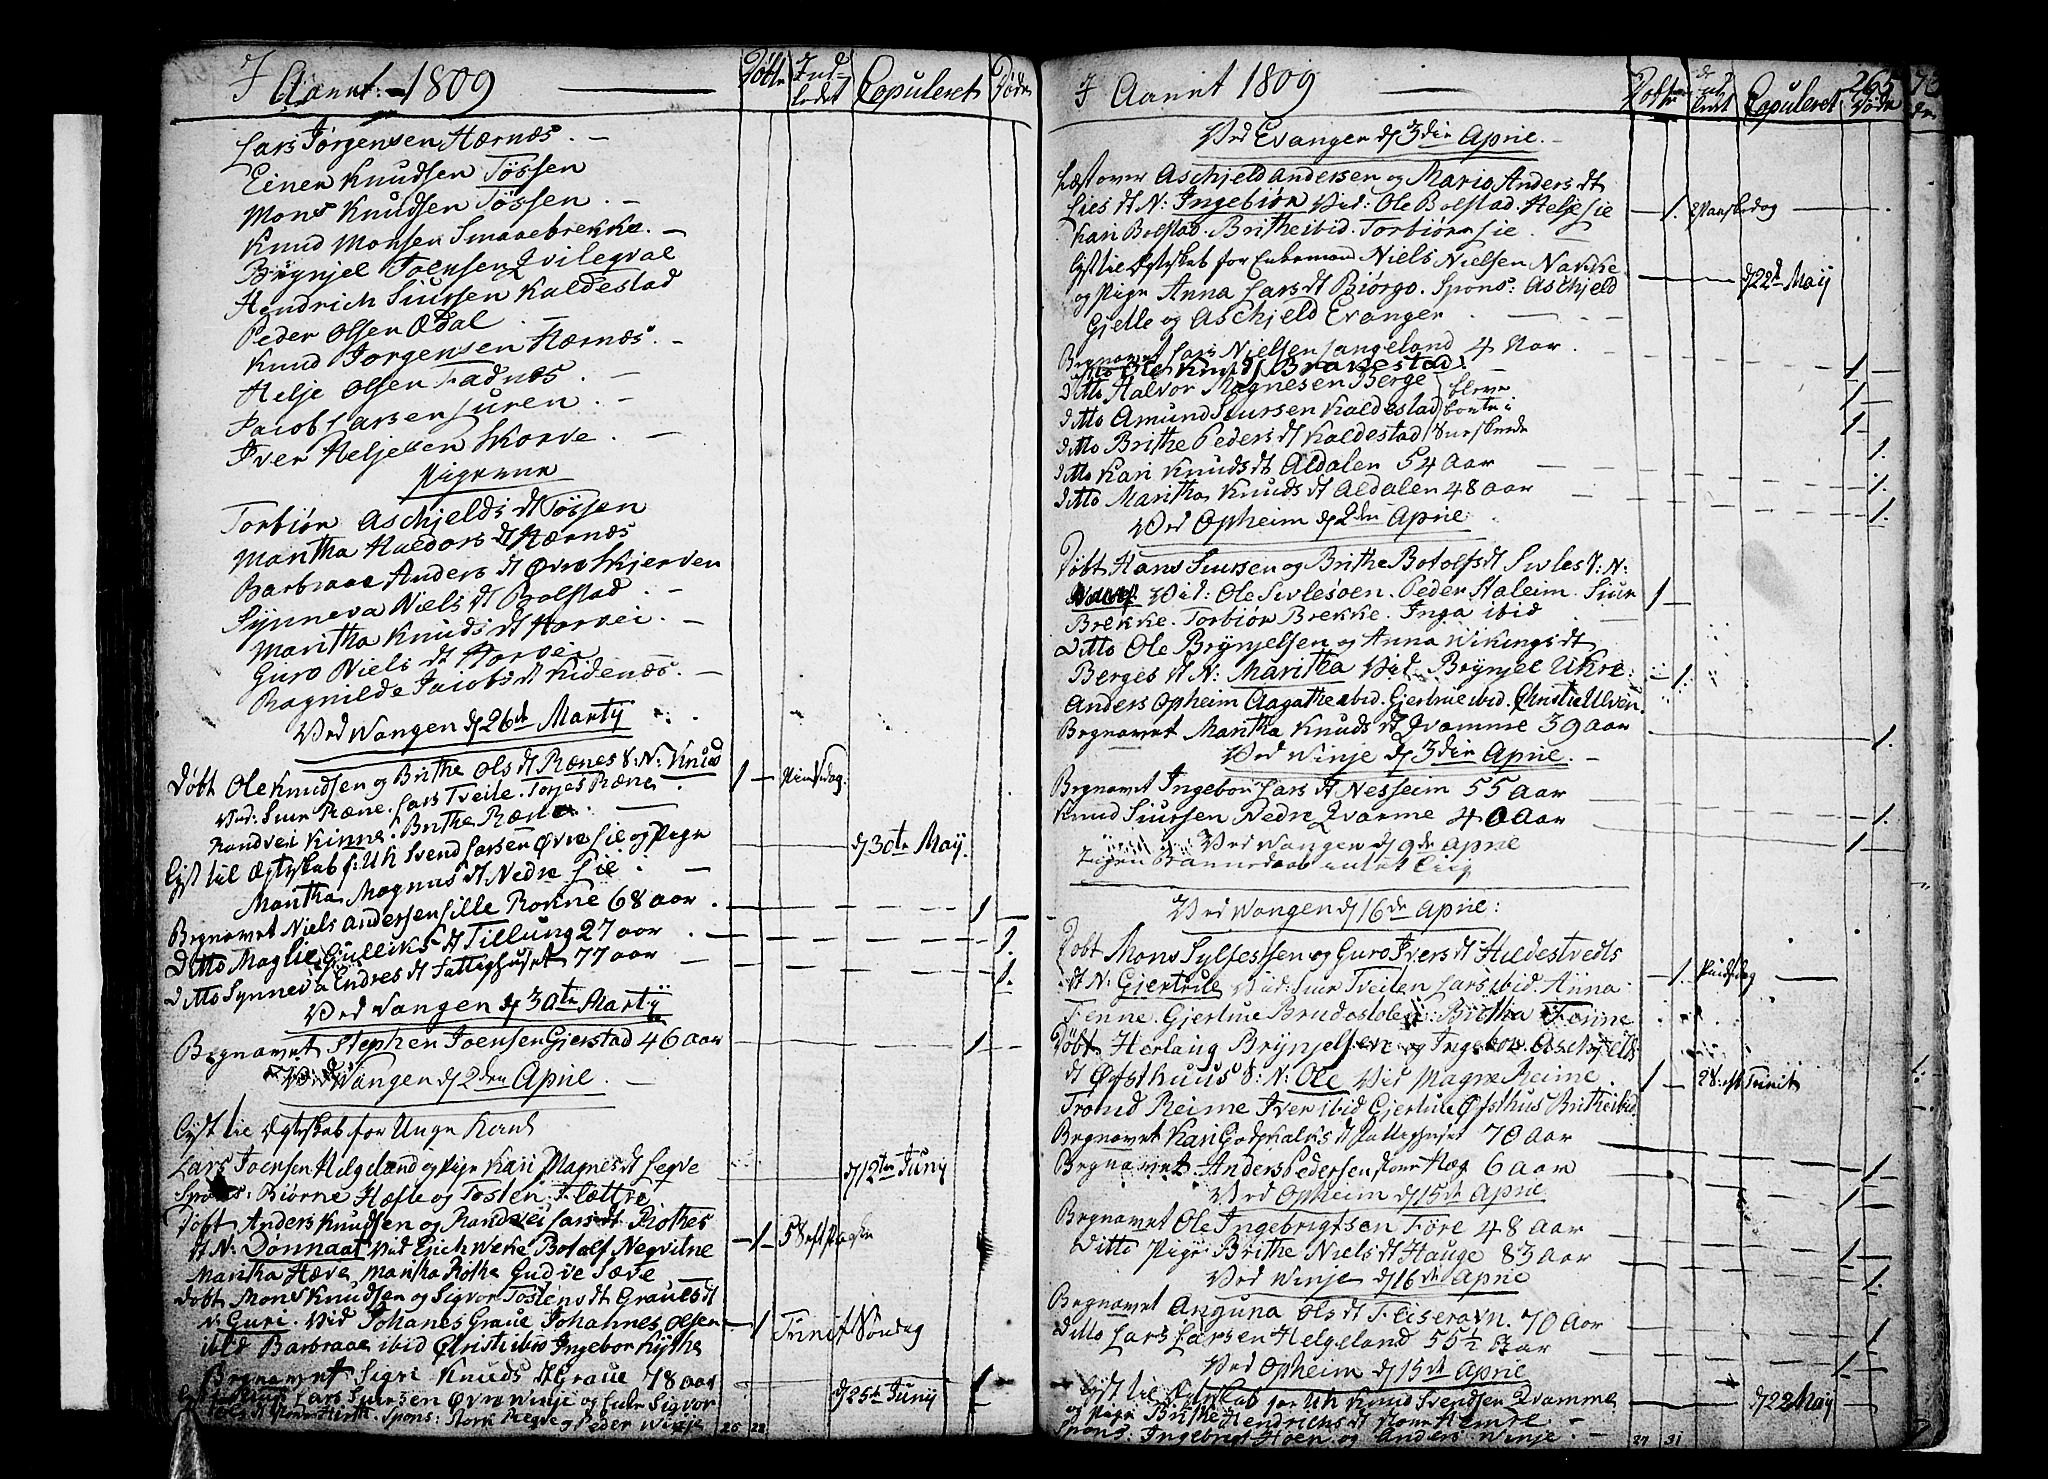 I Aaret 1809
Døbte Ind- ledet Copuleret Døde
Lars Jørgensen Hærnæs
Einer Knudsen Tössen
Mons Knudsen Tössen
Knud Monsen Smaaebrekke
Brynjel Joensen Qvilegval
Hendrich Siursen Kaldestad
Peder Olsen Ødal
Knud Jorgensen Hærnæs
Helje Olsen Fadnæs
Jacob Larsen
Iver Heljesen Skorve
Pigerne
Torbiør Aschjelds dt Tössen
Maritha Haldors dt Hærnæs
Barbraae Anders dt Øvre Skjerven
Synneva Niels dt Bolstad
Maritha Knuds dt Horvei
Guro Niels dt Horvei
Ragnilde Jacobs dt Kidenæs
Ved Wangen d 26de Martij
Døbt Ole Knudsen og Brithe Ols dt Rænes S: N: Knud 1
Vid: Siur Ræne. Lars Tveite. Torjes Ræne
Randvei Kinne. Brithe Ræne
Lyst til Ægteskab f: Uk Svend Larsen Øvre Lie og Pige d 30te Maij
Maritha Magnus dt Nedre Lie
Begravet Niels Andersen Lille Rokne 68 aar 1
Ditto Maglie Gulliks dt Tillung 27 aar 1
Ditto Synneva Endres dt Fattighuset 77 aar 1
Ved Vangen d 30te Martij
Begravet Stephen Joensen Gjerstad 46 aar 1
Ved Wangen d 2den April
Lyst til Ægteskab for Unge Karl
Lars Joensen Helgeland og Pige Kari Magnes dt Legve d 12te Junij
Spons: Biørne Hæfte og Tosten Flættre
Døbt Anders Knudsen og Randvei Lars dt Rothes
dt N: Dønnaat Vid Erich Weke Botolf Negvilne 1
Maritha Hæve Maritha Rothe Gudve Sæve
Døbt Mons Knudsen og Sigvor Tostens dt Graues dt
N: Guri. Vid Johanes Graue Johannes Olsen 1 Trinit Søndag
ibid Barbraae ibid Christi ibid Ingebor Kythe
Begravet Sigri Knuds dt Graue 78 aar 1
Lars Siursen Øvre Winje og Enke Sigvor d 25de Junij
Spons: Peder Winje 26 22
I Aaret 1809
Døbte Copuleret 265 Døde
Ved Evanger d 3die April
Læst over Aschjeld Andersen og Mario Anders dt
Lies dt N: Ingebiør Vid: Ole Bolstad. Helje Lie 1.
Kari Bolstad. Brithe ibid. Torbiør Lie
Lyst til Ægteskab for Enkemand Niels Nielsen Nakke
og Pige Anna Lars dt Biørgo. Spons: Aschjeld d 22de Maij
Gjelle og Aschjeld Evanger
Begravet Lars Nielsen Langeland 4 Aar
Ditto Ole Knuds Brakestad
Ditto Halvor Magnesen Berge
Ditto Amund Siursen Kaldestad
Ditto Brithe Peders dt Kaldestad
Ditto Kari Knuds dt Aldalen 54 Aar
Ditto Maritha Knuds dt Aldalen 48 aar
Ved Opheim d 2den April
Døbt Hans Siursen og Brithe Botolfs dt Sivles S: N:
Vid: Ole Sivlesøen. Peder Staleim. Siur 1
Brekke. Torbiør Brekke. Inga ibid
Ditto Ole Brynjelsen og Anna Wikings dt
Berges dt N: Maritha Vid. Brynjel Ukre 1
Anders Opheim Aagathe ibid. Gjertrue ibid. Christie Ulven
Begravet Maritha Knuds dt Qvamme 39 aar 1
Ved Winje d 3die April
Begravet Ingebor Lars dt Nesseim 55 aar 1
Knud Siursen Nedre Qvarme 40 Aar 1
Ved Wangen d 9de April
Ved Wangen d 16de April:
Døbt Mons Sylfestsen og Guro Ivers dt Hildestvedts
dt N: Gjertrue Vid: Siur Tveiten Lars ibid. Anna 1
Fenne. Gjertrue Brudestolen. Britha Fenne
Døbt Herlaug Brynjelsen og Ingebor Aschjelds
dt Øfsthuus S: N: Ole Vid Magne Reime 1 28: eft Trinit
Trond Reime Iver ibid Gjertrue Øfsthus Brithe ibid
Begravet Kari Godskalks dt Fattighuset 70 aar
Begravet Anders Pedersen Store Hæg 6 aar
Ved Opheim d 15de April
Begravet Ole Ingebrigtsen Före 48 aar
Ditto Pige Brithe Niels dt Hauge 83 aar
Ved Winje d 16de April
Begravet Anguna Ols dt Fleseravn. 70 aar
Ditto Lars Larsen Helgeland 55½ Aar
Ved Opheim d 15de April
Lyst til Ægteskab for Uk Knud Svendsen Qvamme d 22 Maij
og Pige Brithe Hendrichs dt
Spons: Ingebrigt Hoen og Anders Winje 27 31